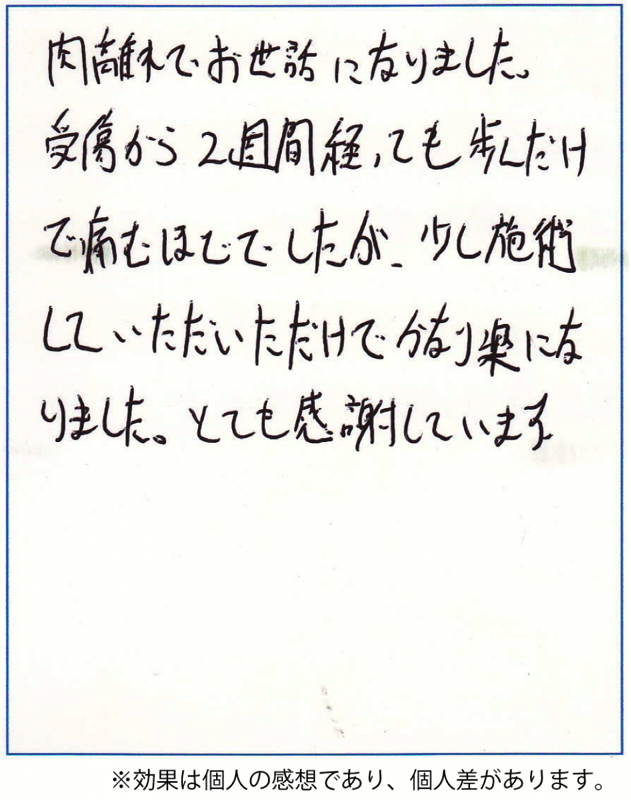 肉離れでお世話になりました。
受傷から2週間経っても歩んだけ
で痛むほどでしたが、少し施術
していただいただけでかなり楽にな
りました。とても感謝しています
※効果は個人の感想であり、個人差があります。